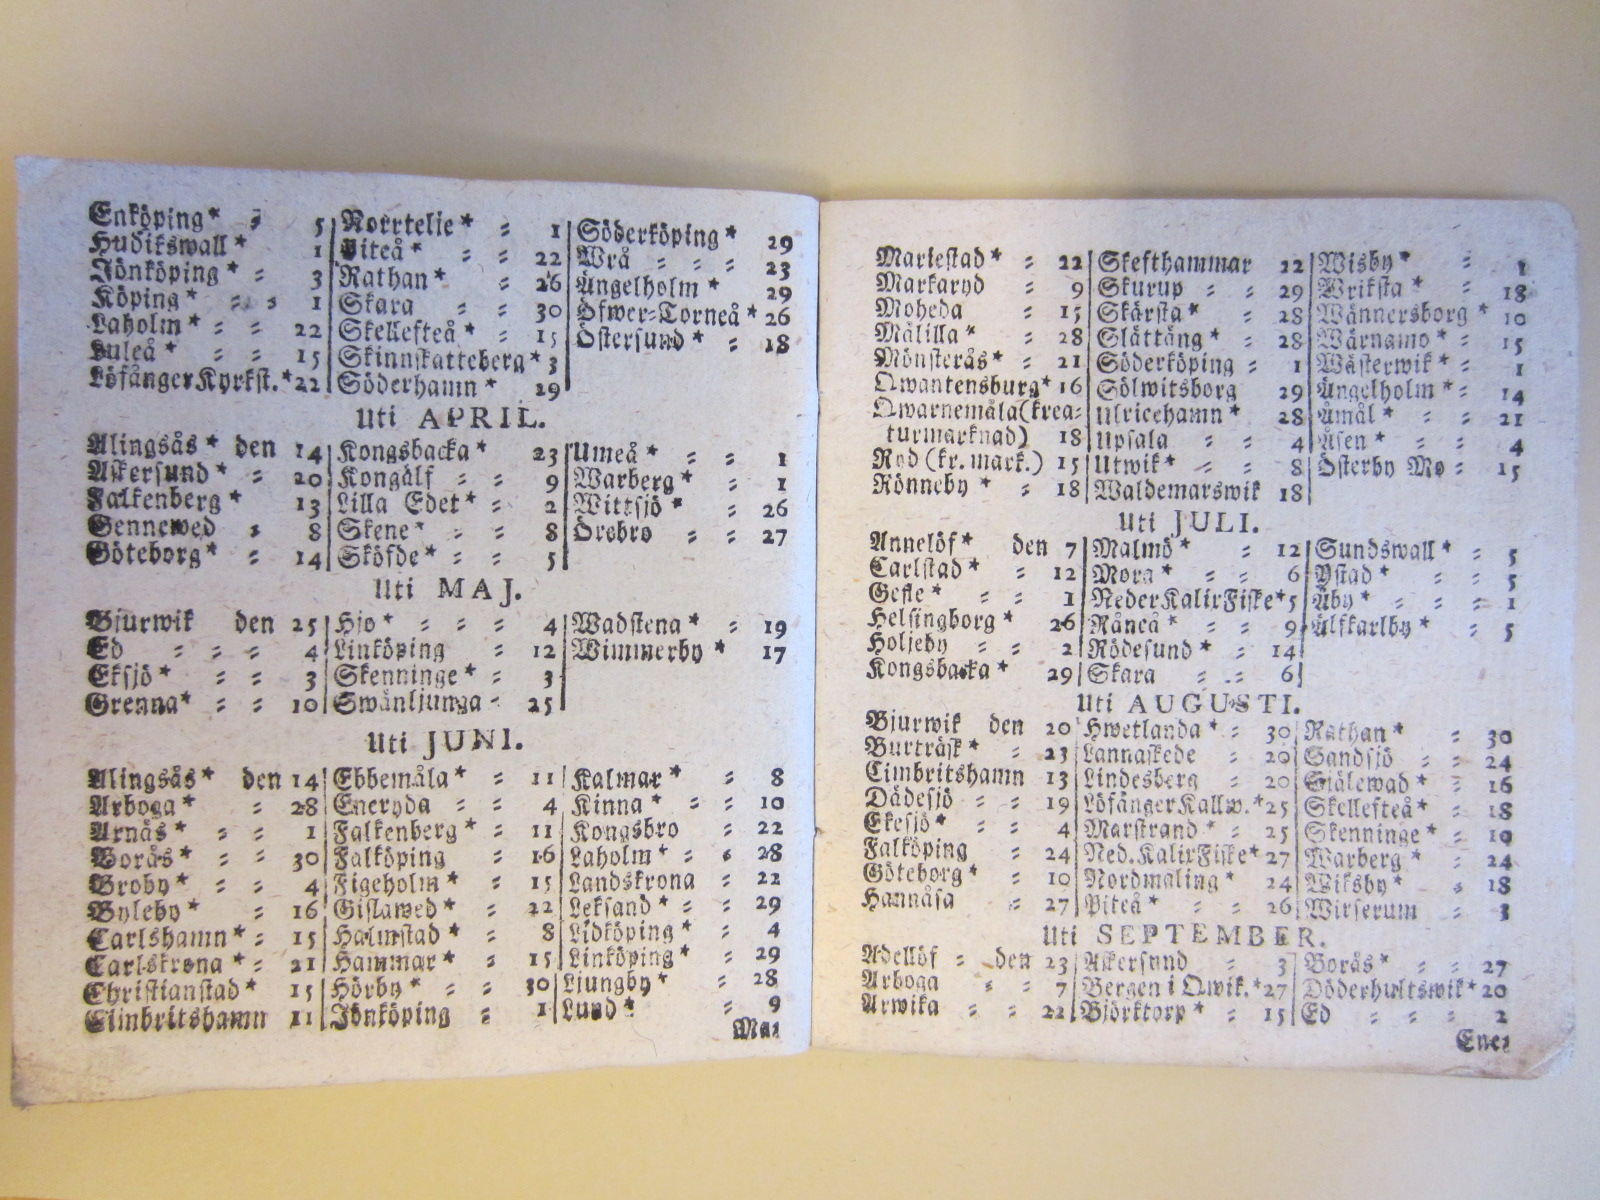 Enköping * = 5
Hudikswall * 1
Jönköping * = 3
Köping * = = 1
Laholm * = = 22
Luleå * = = 15
Löfånger Kyrkst. * 22
Norrtelje * = 1
Piteå * = = 22
Rathan * = 26
Skara = = 30
Skellefteå * = 15
Skinnskatteberg * 3
Söderhamn * 29
Söderköping * 29
Wrå = = = 23
Ängelholm * 29
Öfwer-Torneå * 26
Östersund * = 18
Uti APRIL.
Alingsås * den 14
Askersund * = 20
Falkenberg * 13
Gennewed = 8
Göteborg * = 14
Kongsbacka * 23
Kongälf = = 9
Lilla Edet * = 2
Skene * = = 8
Sköfde * = = 5
Umeå * = = 1
Warberg * = 1
Wittsjö * = 26
Örebro = = 27
Uti MAJ.
Bjurwik den 25
Ed = = = 4
Eksjö * = = 3
Grenna * = = 10
Hjo * = = = 4
Linköping = 12
Skenninge * = 3
Swänljunga = 25
Wadstena * = 19
Wimmerby * 17
Uti JUNI.
Alingsås * den 14
Arboga * = 28
Arnäs * = = 1
Borås * = = 30
Broby * = = 4
Byleby * = 16
Carlshamn * = 15
Carlskrona * = 21
Christianstad * 15
Cimbritshamn 11
Ebbemåla * = 11
Eneryda = = 4
Falkenberg * = 11
Falköping = 16
Figeholm * = 15
Gislawed * = 22
Halmstad * = 8
Hammar * = 15
Hörby * = = 30
Jönköping = 1
Kalmar * = 8
Kinna * = = 10
Kongsbro = 22
Laholm * = = 28
Landskrona = 22
Leksand * = = 29
Lidköping * = 4
Linköping * = 29
Ljungby * = 28
Lund * = 9
Mar
Mariestad * = 22
Markaryd = 9
Moheda = 15
Målilla * = 28
Mönsterås * = 21
Qwantensburg * 16
Qwarnemåla (krea-
turmarknad) 18
Ryd (kr. mark.) 15
Rönneby * = 18
Skefthammar 22
Skurup = = 29
Skärsta * = 28
Slättäng * = 28
Söderköping = 1
Sölwitsborg 29
Ulricehamn * 28
Upsala = = 4
Utwik * = = 8
Waldemarswik 18
Wisby * = 1
Wriksta * = 18
Wännersborg * 10
Wärnamo * = 15
Wästerwik * = 1
Ängelholm * = 14
Åmål * = = 21
Åsen * = = 4
Österby Mo = 15
Uti JULI.
Annelöf * den 7
Carlstad * = 12
Gefle * = = 1
Helsingborg * 26
Holjeby = = 2
Kongsbacka * 29
Malmö * = 12
Mora * = = 6
Neder Kalix Fiske * 5
Råneå * = = 9
Rödesund * = 14
Skara = = 6
Sundswall * = 5
Ystad * = = 5
Åby * = = = 1
Älfkarlby * = 5
Uti AUGUSTI.
Bjurwik den 20
Burträsk * = 23
Cimbritshamn 13
Dädesjö = = 19
Ekesjö * = = 4
Falköping = 24
Göteborg * = 10
Hannåsa = 27
Hwetlanda * = 30
Lannaskede = 20
Lindesberg = 20
Löfånger Kallw. * 25
Marstrand * = 25
Ned. Kalix Fiske * 27
Nordmaling * 24
Piteå * = = 26
Rathan * = 30
Sandsjö = = 24
Själewad * = 16
Skellefteå * = 18
Skenninge * = 10
Warberg * = 24
Wiksby * = 18
Wirserum = 3
Uti SEPTEMBER.
Adellöf = den 23
Arboga = = 7
Arwika = = 22
Askersund = 3
Bergen i Qwik. * 27
Björktorp * = 15
Borås * = = 27
Döderhultswik * 20
Ed = = = 2
Ene=